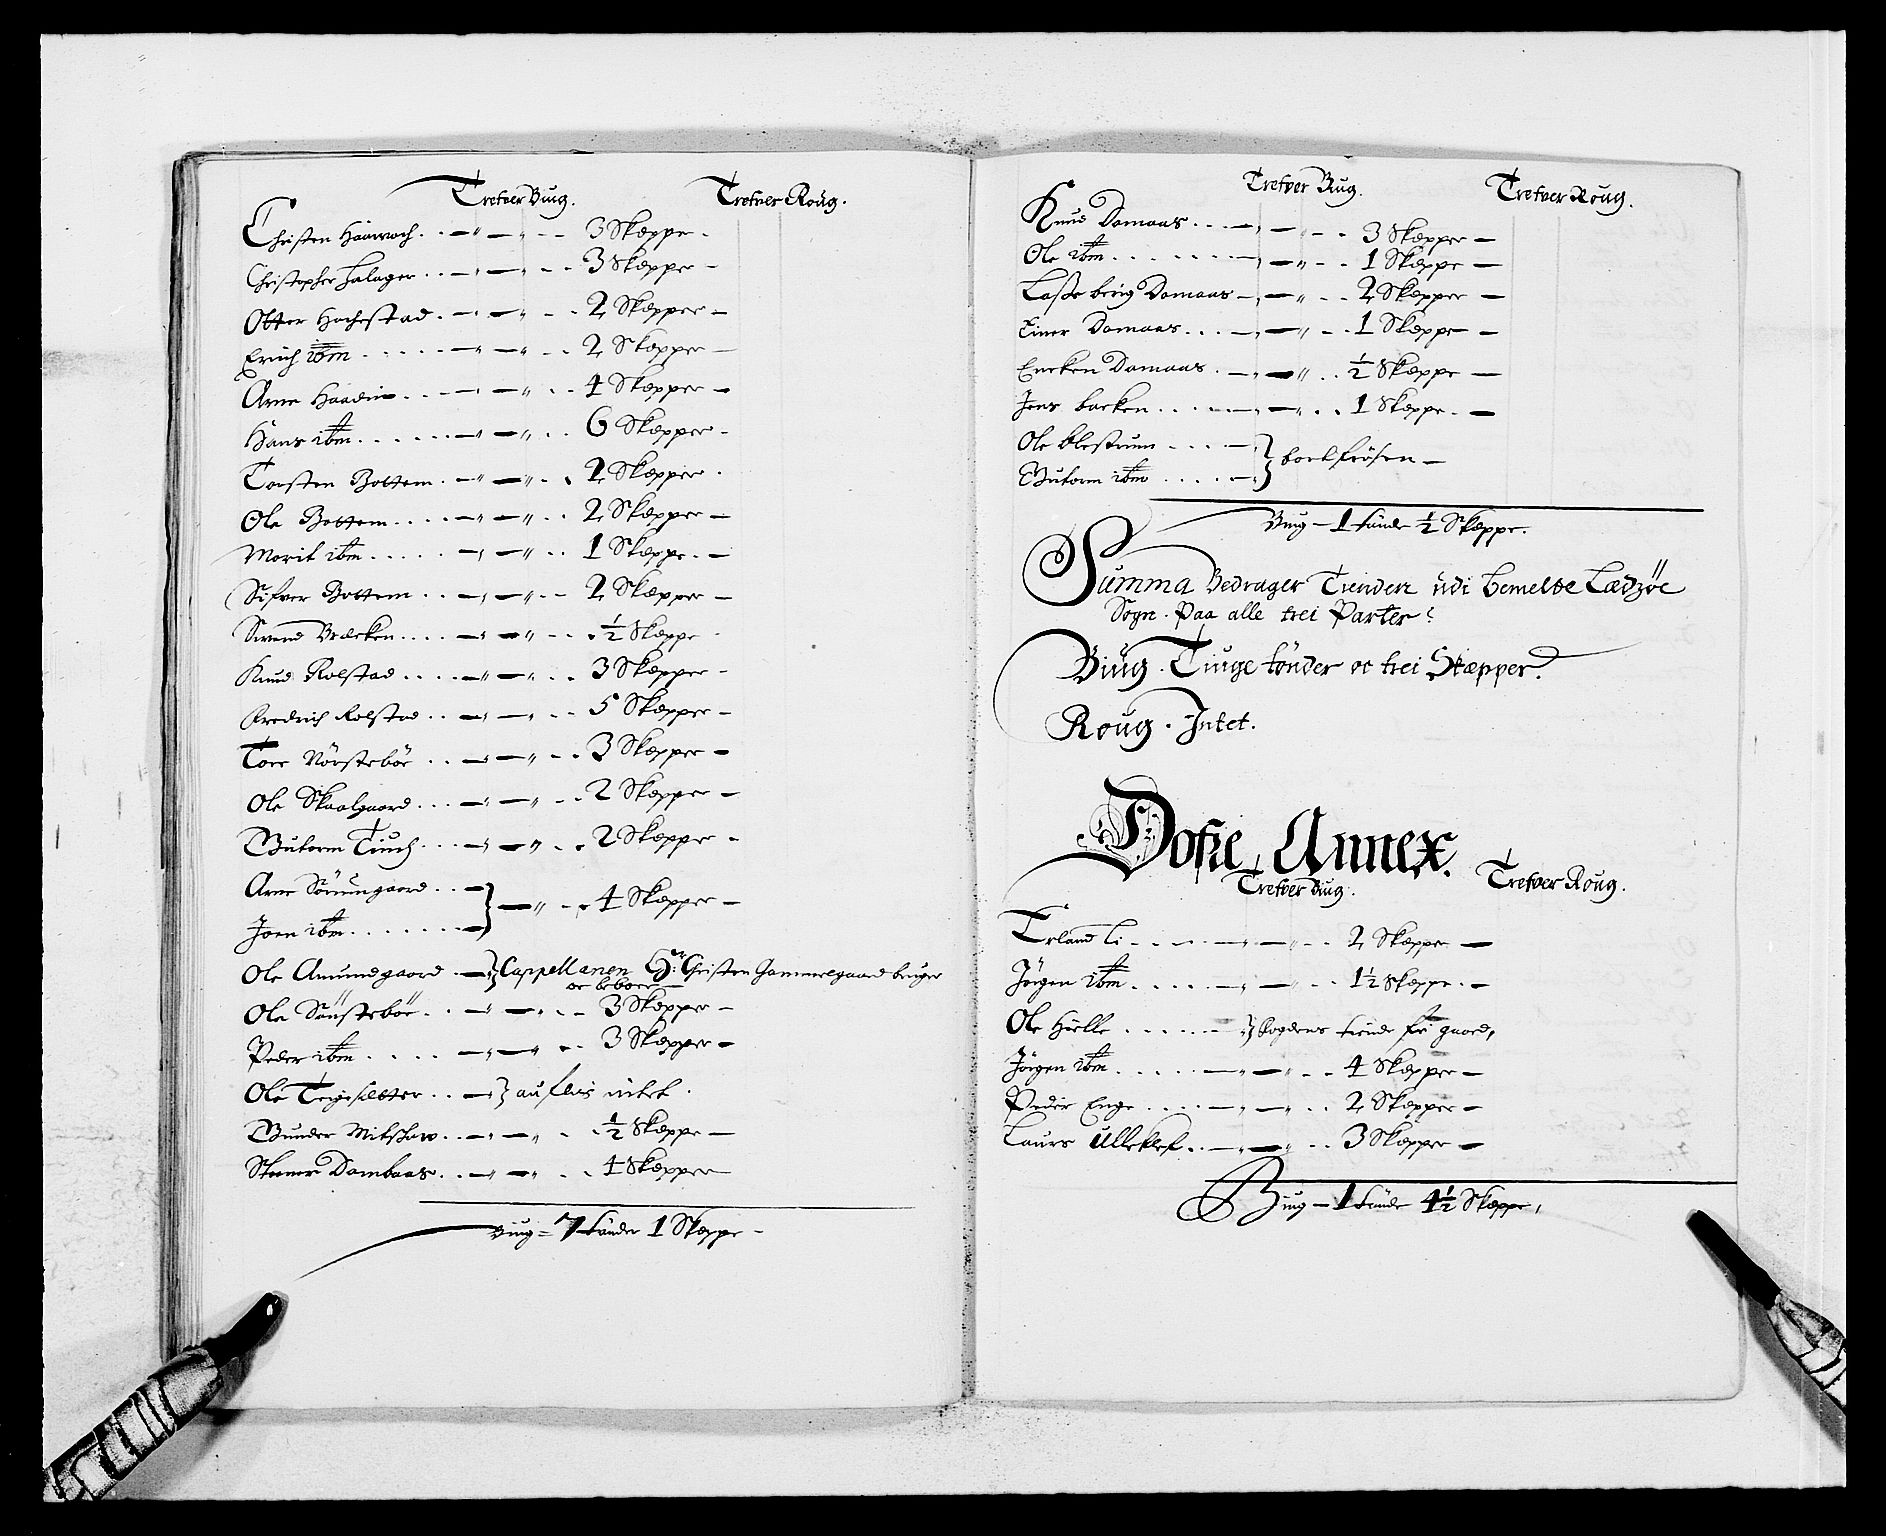 Tretver Biug. Tretver Roug.
Christen Haawoch . . — „ — „ - - 3 Skepper -
Christopher Halager . . — „ — „ - - 3 Skepper -
Otter Hochestad . — „ — „ - - 2 Skepper —
Erich ibm . . . . . — „ — „ . . 2 Skepper —
Arne Haadin . . . — „ — „ . . 4 Skepper —
Hans ibm . . . . . . — „ — „ . . 6 Skepper -
Torsten Bottem . — „ — „ . . 2 Skepper .
Ole Bottem . . . . — „ — „ . . 2 Skepper —
Morit ibm . . . . . — „ — „ . . 1 Skeppe . —
Sifver Bottem . . — „ — „ - - 2 Skepper —
Swend Brecken . . . . — „ — „ - - . ½ Skeppe -
Knud Rolstad . . . . — „ — „ . . 3 Skepper -
Fredrich Rolstad . . — „ — „ - - 5 Skepper —
Tore Nörstebör . . — „ — „ . - 3 Skepper —
Ole Skaalgaard . . . — „ — „ . - 2 Skepper —
Gutorm Tiuch . . . — „ — „ . . 2 Skepper -
Arne Sönungaard . . —
} — „ - . 4 Skepper —
Joen ibm . . . . . . . —
Ole Amundgaard . — „ } Cappellanen Her: Christen Gammelgaard bruger
oc beboer —
Ole Sönstebör . . — „ — „ . - 3 Skepper —
Peder ibm . . . . — „ — „ . . 3 Skepper —
Ole Teigesetter . . — „ } auflis intet .
Gunder Mitskow . . — „ — „ . . ½ Skeppe —
Steener Dombaas . . — „ — „ . . 4 Skepper
Biug = 7 tönder 1 Skeppe -
Tretver Biug. Tretver Roug.
Knud Domaas . . . — „ — „ . . 3 Skepper —
Ole ibm . . . . . . . — „ — „ . . 1 Skeppe —
Lasse berig Domaas — „ — „ . . 2 Skepper —
Einer Domaas . . . — „ — „ . . 1 Skeppe —
Encken Domaas . — „ — „ . . ½ Skeppe —
Jens backen . . . . — „ — „ . . 1 Skeppe . —
Ole Blestrum . . . . —
} bortfrösen —
Gutorm ibm . . . . —
Biug — 1 tönde ½ Skeppe .
Summa Bedrager Tienden udi bemelte Ledzöe
Sogn . Paa alle trei Parter :
Biug . Tiuge tönder oc trei Skepper
Roug . Intet .
Dofre Annex.
Tretver Biug. Tretver Roug.
Erland Li . . . . . — „ — „ . . 2 Skepper —
Jörgen ibm . . . . . — „ — „ . . 1½ Skeppe . —
Ole Hielle . . . . . . — „ } Fogdens tiende fri gaard,
Jörgen ibm . . . . . — „ — „ . . 4 Skepper —
Peder Enge . . . . — „ — „ . . 2 Skepper —
Laurs Ulleklef . . — „ — „ . . 3 Skepper —
Biug — 1 tönde 4½ Skeppe,